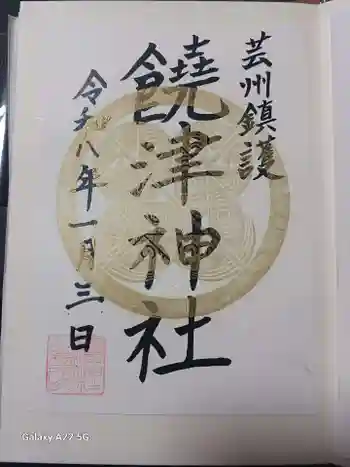 芸州鎮護
饒津神社
令和八年一月三日
Galaxy A22 5G